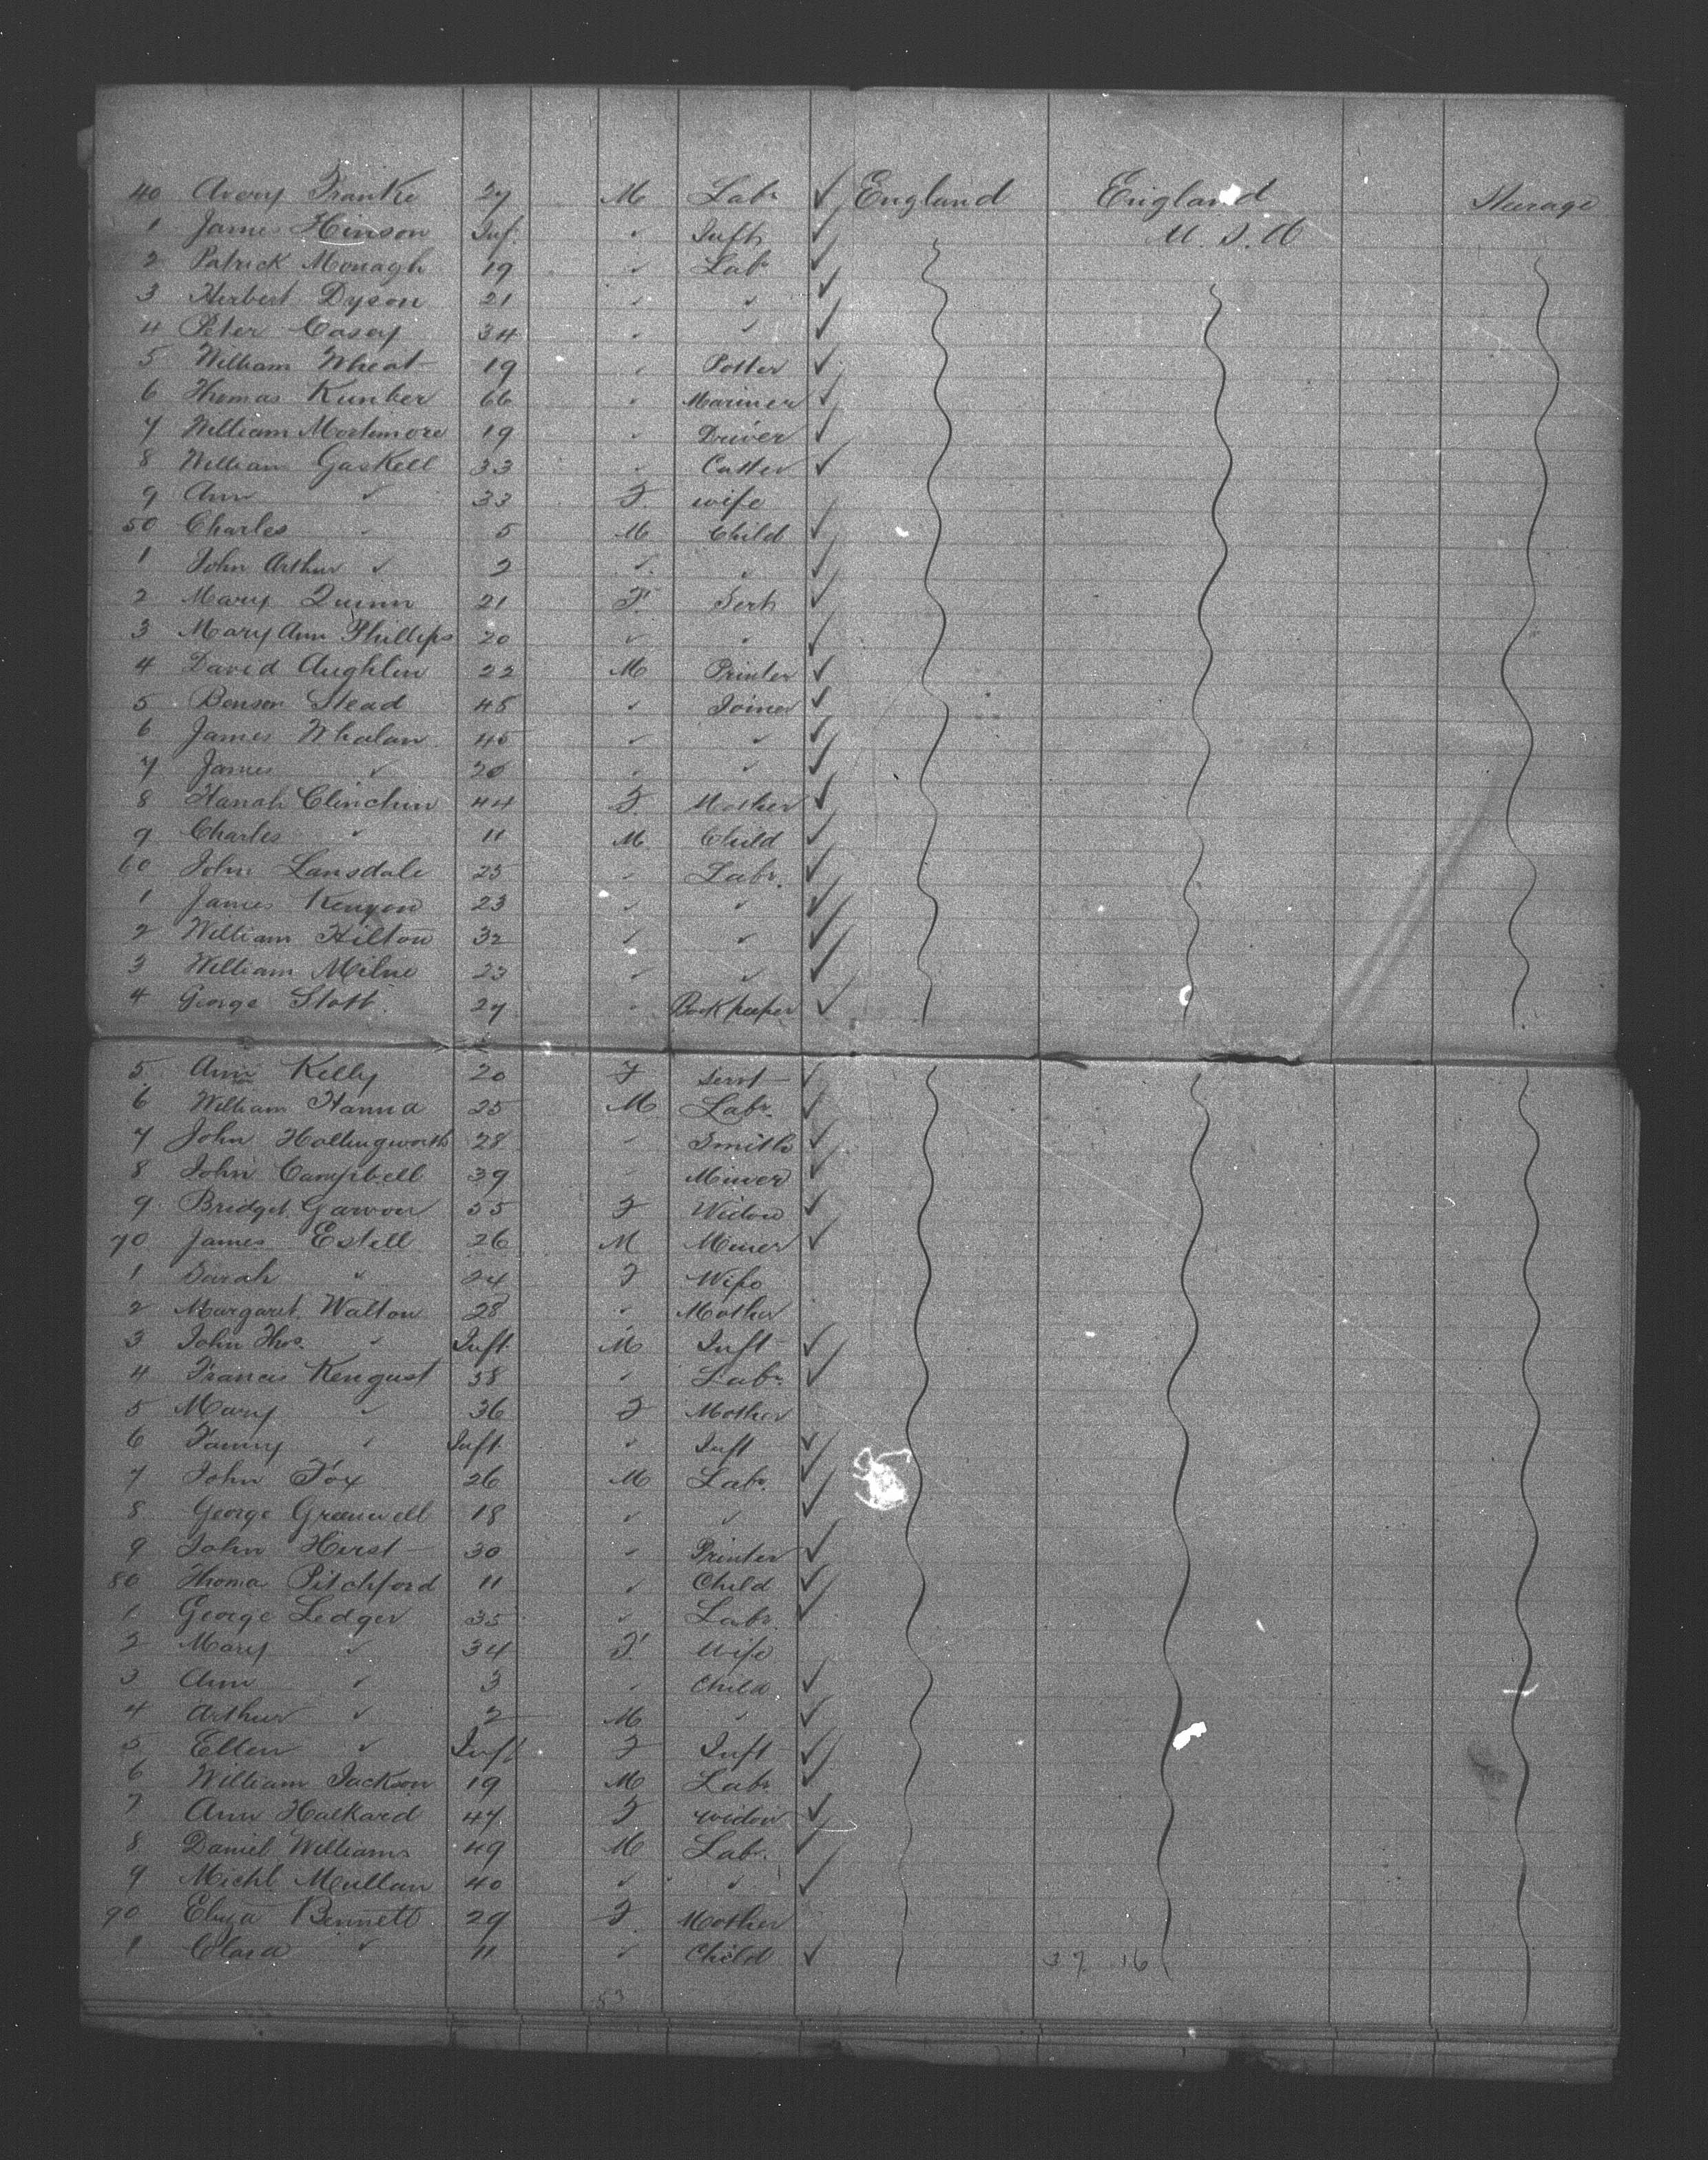 40 Avery Franke 27 M Labr ✓ England England Steerage
1 James Hinson Inf. " Inft ✓ U. S. A
2 Patrick Monagh 19 " Labr ✓
3 Herbert Dyson 21 " " ✓
4 Peter Casey 34 " " ✓
5 William Wheat 19 " Potter ✓
6 Thomas Kunber 66 " Mariner ✓
7 William Mortimore 19 " Driver ✓
8 William Gaskell 33 " Cutter ✓
9 Ann " 33 F. wife
50 Charles " 5 M Child ✓
1 John Arthur " 2 " " ✓
2 Mary Quinn 21 F. Servt ✓
3 Mary Ann Phillips 20 " " ✓
4 David Aughlin 22 M Printer ✓
5 Benson Stead 45 " Joiner ✓
6 James Whalan 45 " " ✓
7 James " 20 " " ✓
8 Hanah Clinchin 44 F. Mother ✓
9 Charles " 11 M. Child ✓
60 John Lansdale 25 " Labr. ✓
1 James Kenyon 23 " " ✓
2 William Hilton 32 " " ✓
3 William Milne 23 " " ✓
4 George Stott 27 " Bookkeeper ✓
5 Ann Kelly 20 F Servt ✓
6 William Hanna 25 M Labr. ✓
7 John Hollingworth 28 " Smith ✓
8 John Campbell 39 " Miner ✓
9 Bridget Garvon 35 F Widow ✓
70 James Estell 26 M Miner ✓
1 Sarah " 24 F Wife
2 Margaret Walton 28 " Mother
3 John Thos. " Inft. M Inft ✓
4 Francis Kengust 38 " Labr. ✓
5 Mary " 36 F Mother
6 Fanny " Inft. " Inft ✓
7 John Fox 26 M Labr. ✓
8 George Greenwell 18 " " ✓
9 John Hirst 30 " Printer ✓
80 Thomas Pitchford 11 " Child ✓
1 George Ledger 35 " Labr ✓
2 Mary " 34 F. Wife
3 Ann " 3 " Child ✓
4 Arthur " 2 M " ✓
5 Ellen " Inft F Inft ✓
6 William Jackson 19 M Labr ✓
7 Ann Halkard 47 F Widow ✓
8 Daniel Williams 49 M Labr. ✓
9 Michl Mullan 40 " " ✓
90 Eliza Bennett 29 F. Mother
1 Clara " 11 " Child ✓ 37 16
53